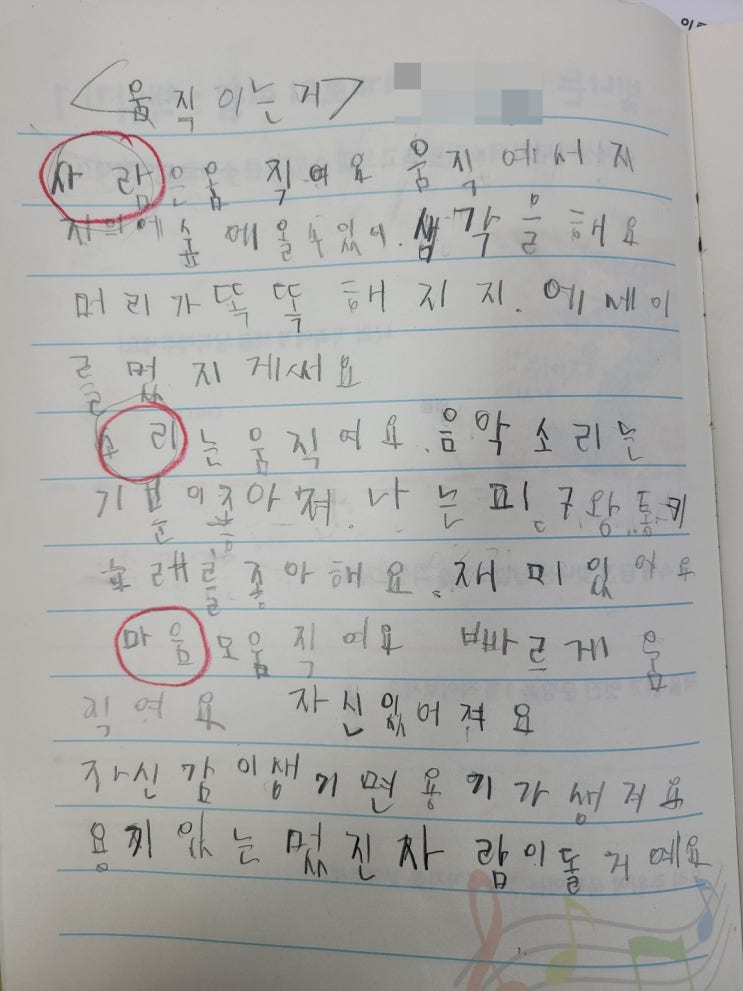 <움직이는거>
사람은움직여요 움직에서지
에올수있어. 샘각을해요
머리가똑똑해지지. 에메이
를멌지게써요
소리는움직여요. 음악소리는
기분이좋아져. 나는핑구왕통키
노래를좋아해요. 재미있어요
마음모움직여요 빠르게움
직여요 자신있어져요
자신감이생기면용기가생겨요
용기있는멌진사람이돌거예요